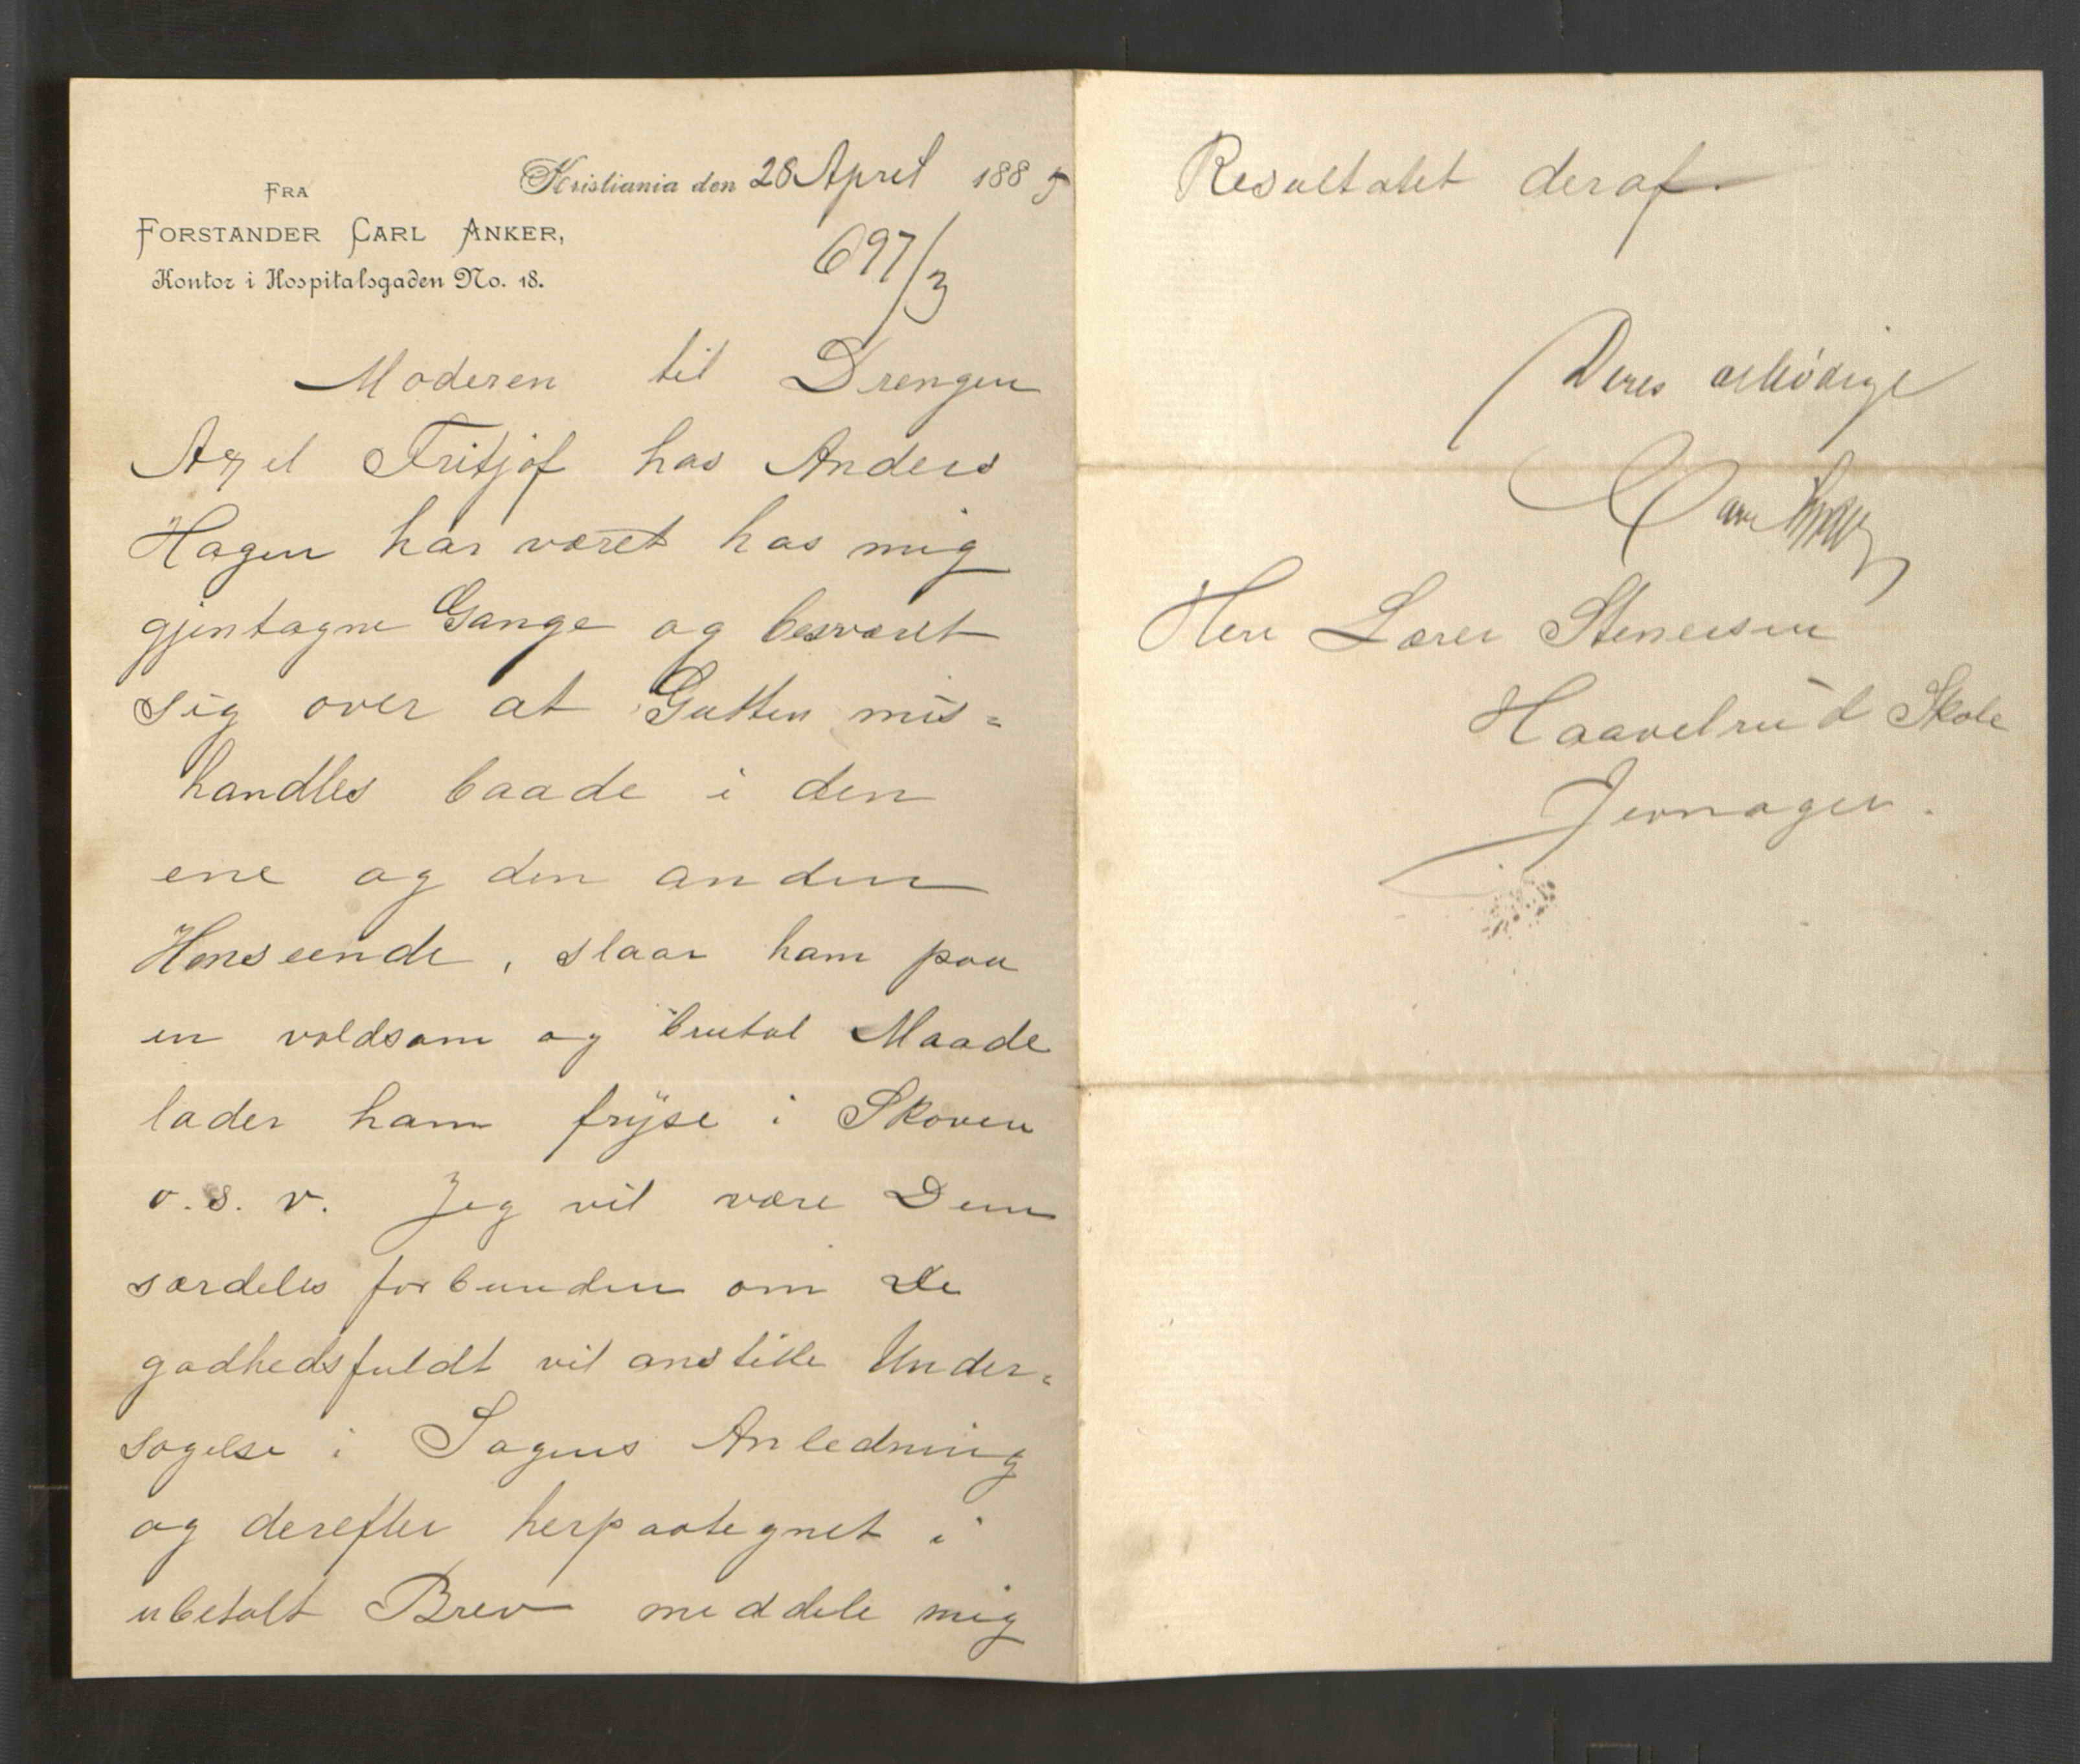 Kristiania den 28 April 1885
FRA
FORSTANDER CARL ANKER,
Kontor i Hospitalsgaden No. 18.
697/3
Moderen til Drengen
Axel Fritjof hos Anders
Hagen har været hos mig
gjentagne Gange og besværet
sig over at Gutten mis=
handles baade i den
ene og den anden
Henseende, slaar ham paa
en voldsom og brutal Maade
lader ham fryse i Skoven
o. s. v. Jeg vil være Dem
særdeles forbunden om De
godhedsfuldt vil anstille Under=
søgelse i Sagens Anledning
og derefter herpaategnet i
ubetalt Brev meddele mig
Resultatet deraf.
Deres ærbødige
Carl Anker
Herr Lærer Stenersen
Haavelrud Skole
Jevnager.